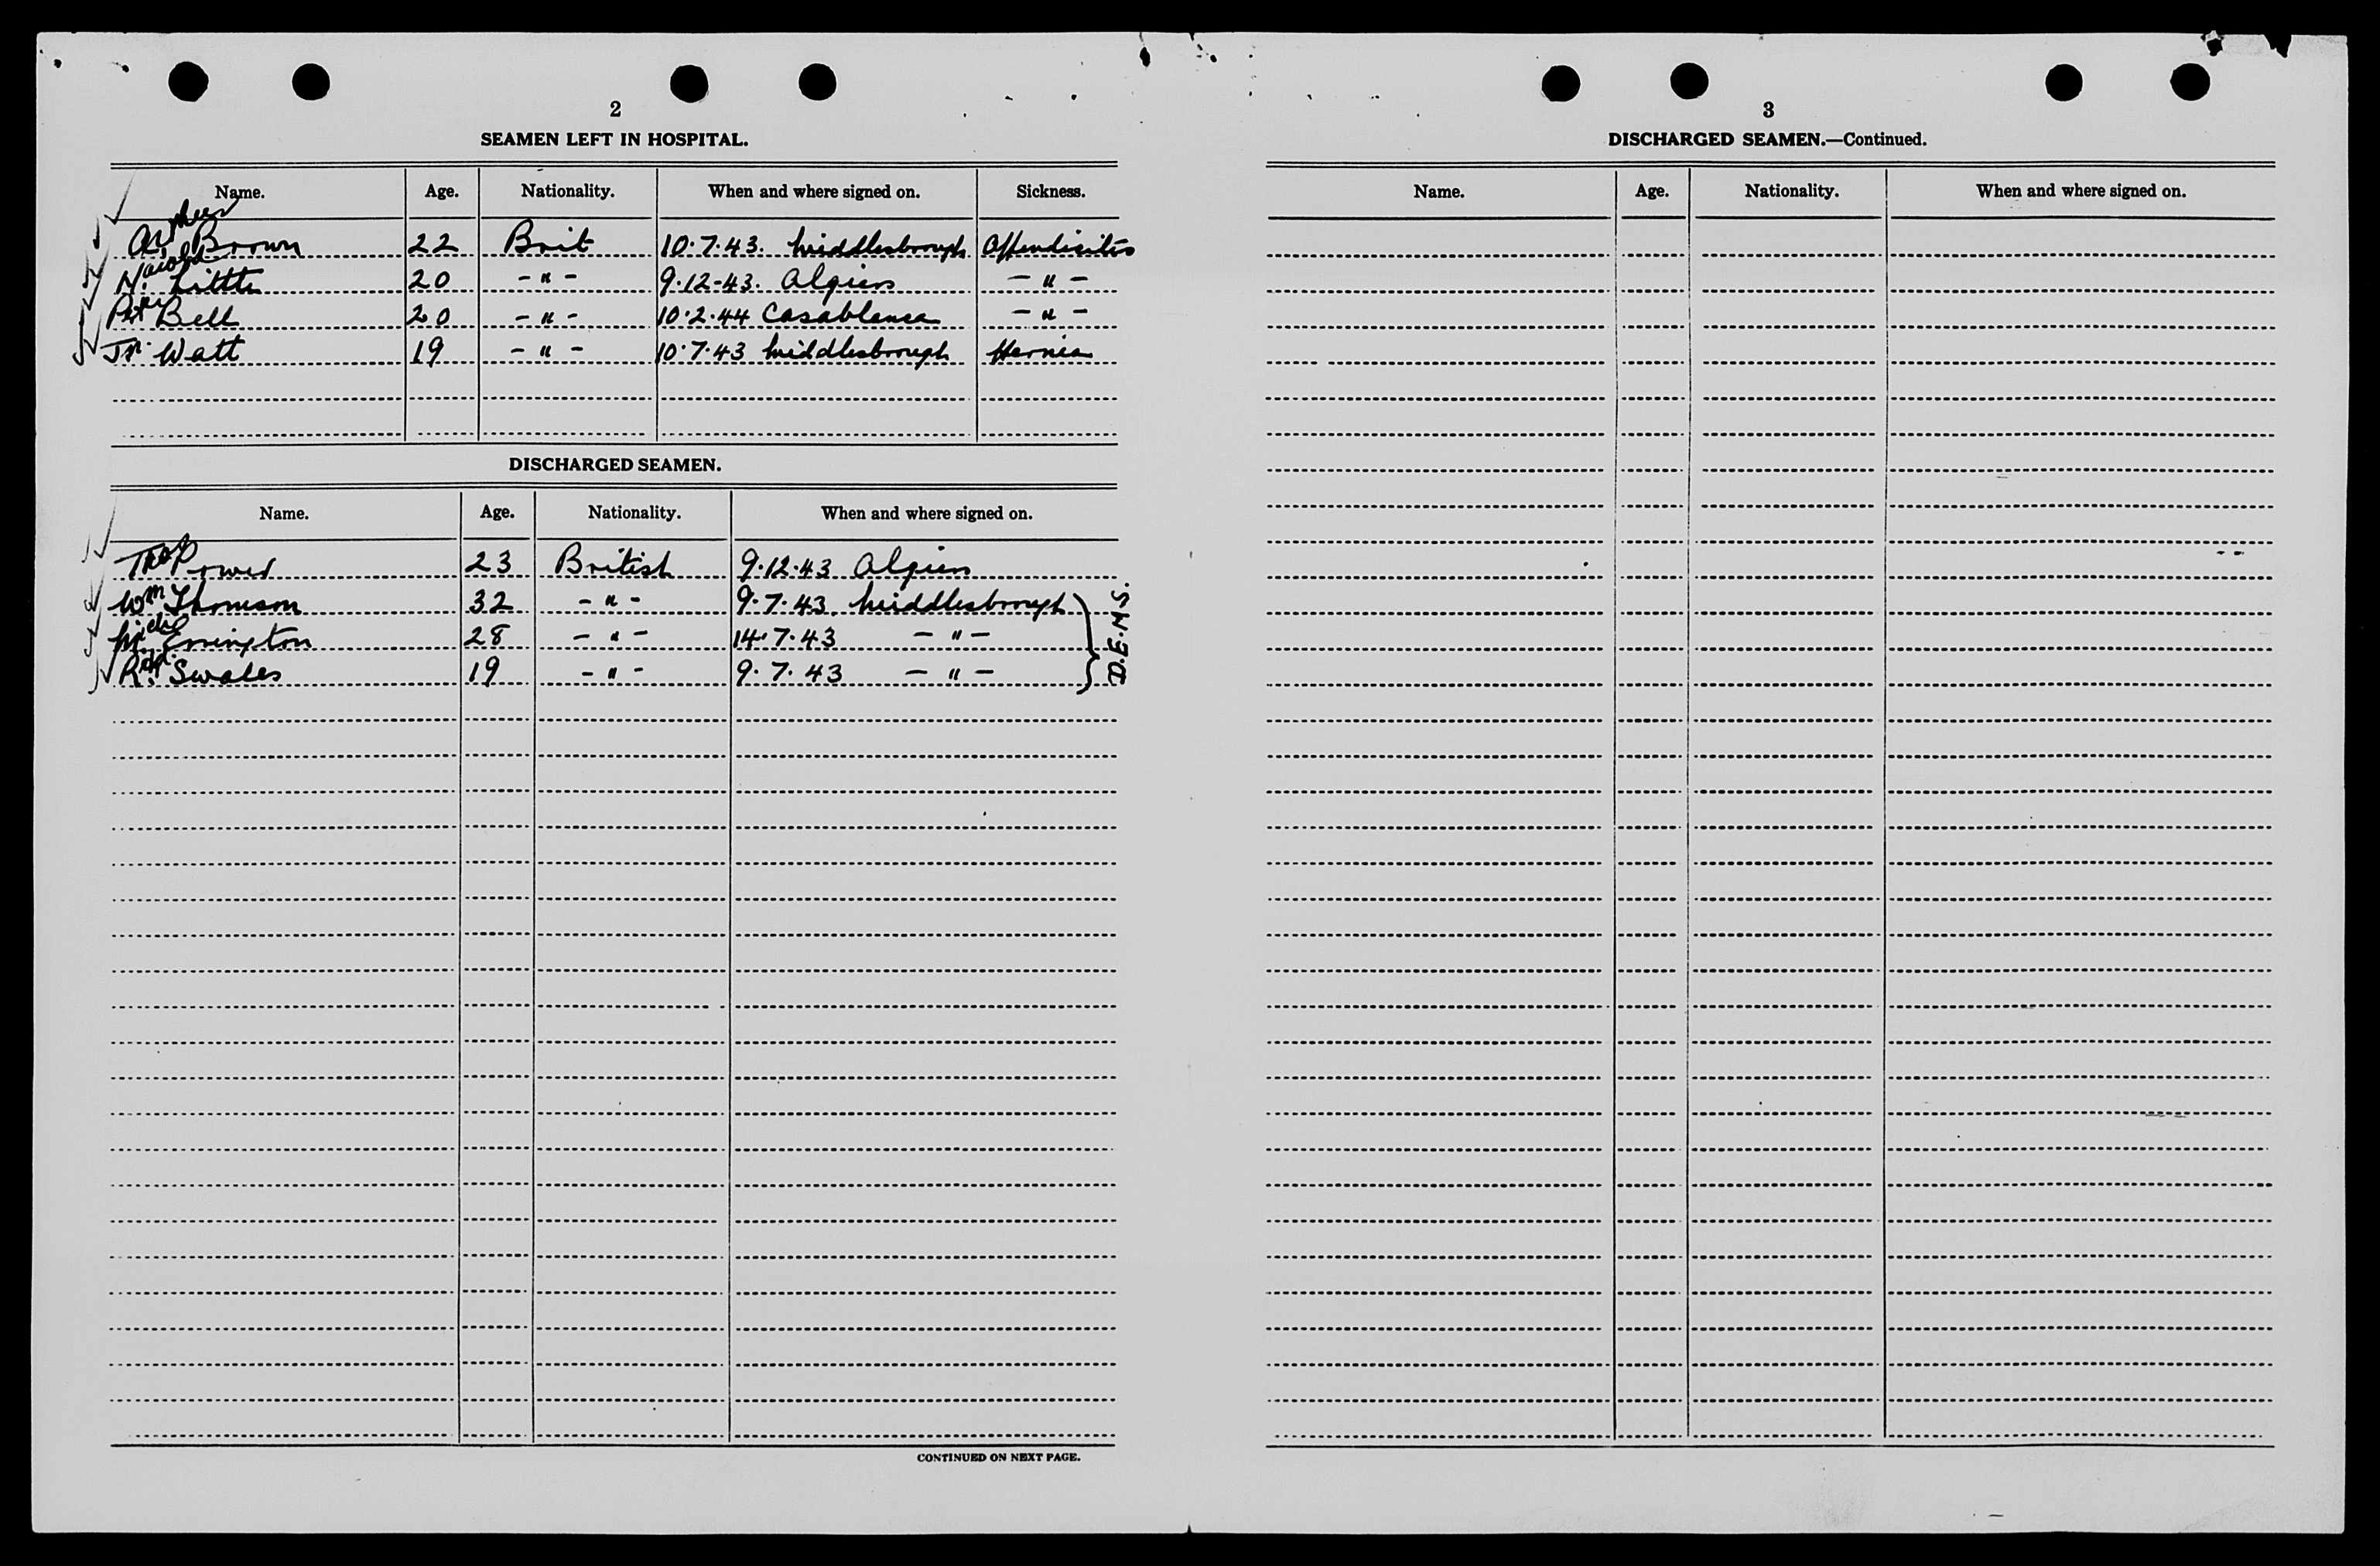 2
SEAMEN LEFT IN HOSPITAL.
Name. Age. Nationality. When and where signed on. Sickness.
Arthur Brown 22 Brit 10.7.43. Middlesbrough Appendicitis
Harold Little 20 -"- 9.12-43. Algiers -"-
Bell 20 -"- 10.2.44 Casablanca -"-
Watt 19 -"- 10.7.43 Middlesbrough Hernia
DISCHARGED SEAMEN.
Name. Age. Nationality. When and where signed on.
Thos Power 23 British 9.12.43 Algiers
Wm Thomson 32 -"- 9.7.43. Middlesbrough
Errington 28 -"- 14.7.43 -"-
Swales 19 -"- 9.7.43 -"-
D.E.M.S.
CONTINUED ON NEXT PAGE.
3
DISCHARGED SEAMEN.—Continued.
Name. Age. Nationality. When and where signed on.